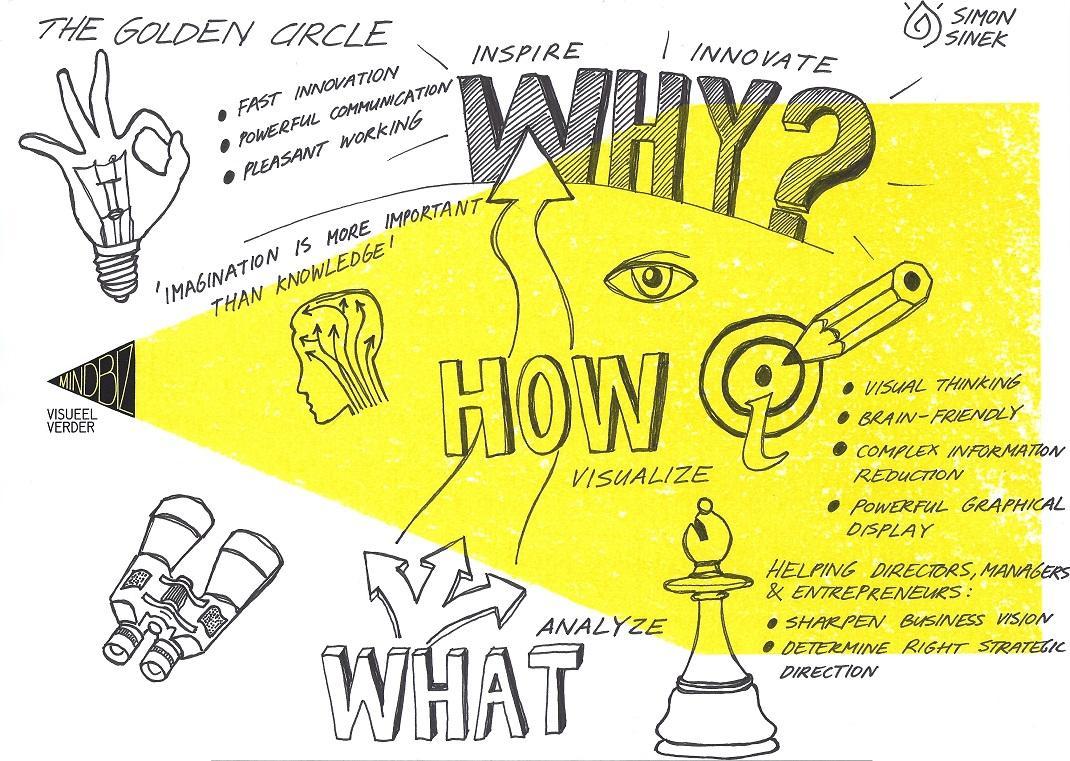 THE GOLDEN CIRCLE
SIMON
SINEK
INSPIRE
INNOVATE
WHY?
• FAST INNOVATION
• POWERFUL COMMUNICATION
• PLEASANT WORKING
'IMAGINATION IS MORE IMPORTANT
THAN KNOWLEDGE'
MINDBIZ
VISUEEL
VERDER
HOW
VISUALIZE
i
• VISUAL THINKING
• BRAIN-FRIENDLY
• COMPLEX INFORMATION
REDUCTION
• POWERFUL GRAPHICAL
DISPLAY
HELPING DIRECTORS, MANAGERS
& ENTREPRENEURS:
• SHARPEN BUSINESS VISION
• DETERMINE RIGHT STRATEGIC
DIRECTION
ANALYZE
WHAT